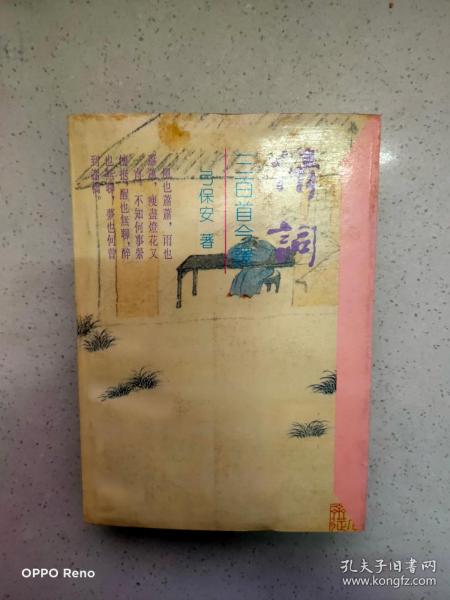 清詞
三百首今譯
弓保安 著
風也蕭蕭，雨也
蕭蕭，瘦盡燈花又
一宵。不知何事縈
懷抱，醒也無聊，醉
也無聊，夢也何曾
到謝橋。
OPPO Reno
孔夫子旧书网
www.kongfz.com